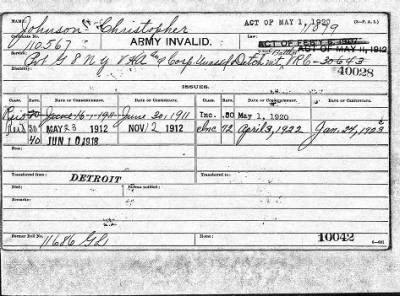 Johnson Christopher ACT OF MAY 1, 1920
Name: 11899
Certificate No. 110,567 ARMY INVALID. ACT OF MAY 11, 1912
Service: Pvt G 8 N.Y. V.H.A. Corp. Det. V.R.C.
40028
ISSUES.
CLASS. RATE. DATE OF COMMENCEMENT. DATE OF CERTIFICATE. CLASS. RATE. DATE OF COMMENCEMENT. DATE OF CERTIFICATE.
Reis June 16 June 20, 1911 Inc. 50 May 1, 1920
Reis 30 MAY 23 1912 NOV 2 1912 Inc 72 April 3, 1922 Jan. 24, 1923
40 JUN 10 1918
Transferred from DETROIT Transferred to
Died: Bureau notified:
Remarks:
Former Roll No. 11686 Home: 10042